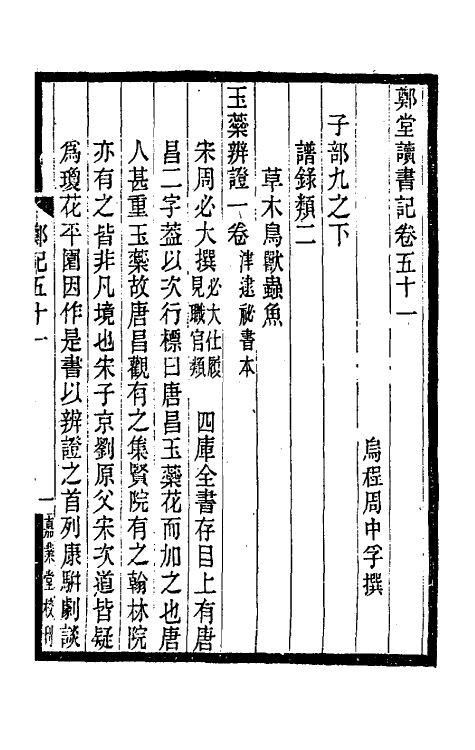 鄭堂讀書記卷五十一
烏程周中孚撰
子部九之下
譜錄類二
草木鳥獸蟲魚
玉蘂辨證一卷津逮祕書本
宋周必大撰必大仕履見職官類 四庫全書存目上有唐
昌二字葢以次行標曰唐昌玉蘂花而加之也唐
人甚重玉蘂故唐昌觀有之集賢院有之翰林院
亦有之皆非凡境也宋子京劉原父宋次道皆疑
爲瓊花平園因作是書以辨證之首列康駢劇談
鄭記五十一
一
嘉業堂校刊